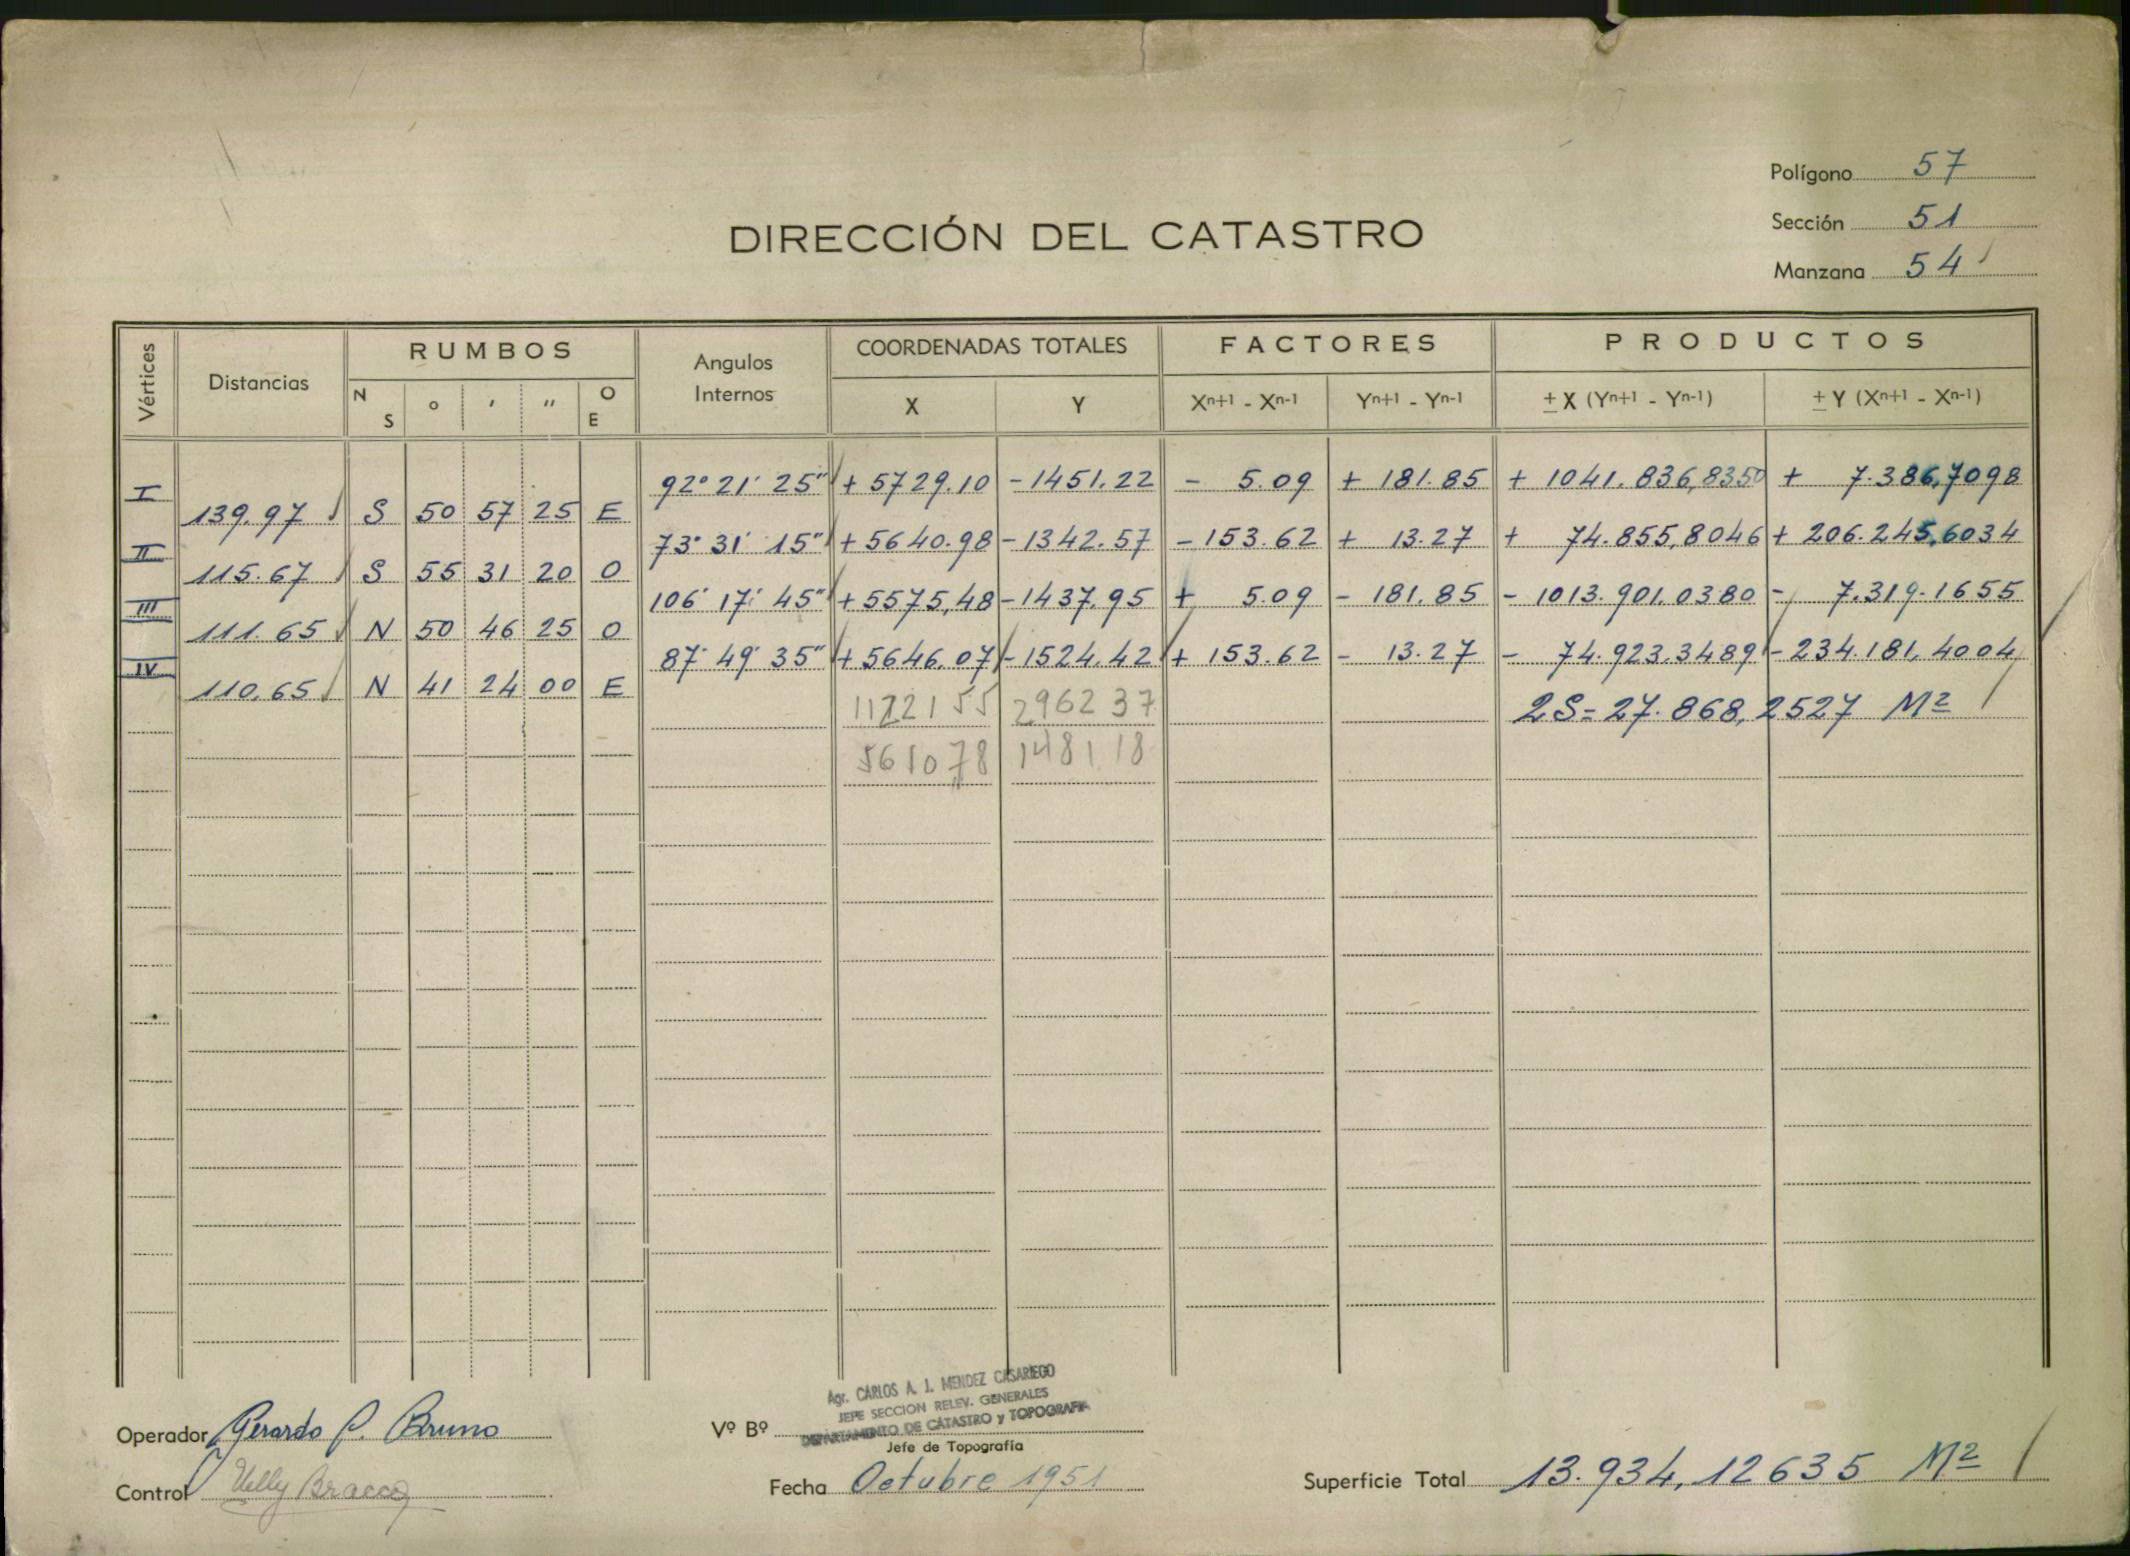 Polígono 57
Sección 51
Manzana 54
DIRECCIÓN DEL CATASTRO
Vértices Distancias RUMBOS Angulos Internos COORDENADAS TOTALES FACTORES PRODUCTOS
N S ° ′ ″ O E X Y Xn+1 - Xn-1 Yn+1 - Yn-1 ± X (Yn+1 - Yn-1) ± Y (Xn+1 - Xn-1)
I 92° 21′ 25″ + 5729.10 - 1451.22 - 5.09 + 181.85 + 1041.836,8350 + 7.386,7098
139.97 S 50 57 25 E
II 73° 31′ 15″ + 5640.98 - 1342.57 - 153.62 + 13.27 + 74.855,8046 + 206.245,6034
115.67 S 55 31 20 O
III 106° 17′ 45″ + 5575,48 - 1437.95 + 5.09 - 181.85 - 1013.901.0380 - 7.319.1655
111.65 N 50 46 25 O
IV 87° 49′ 35″ + 5646.07 - 1524.42 + 153.62 - 13.27 - 74.923.3489 - 234.181,4004
110,65 N 41 24 00 E
1122155 296237 2S= 27.868,2527 M²
561078 148118
Agr. CARLOS A. J. MENDEZ CASARIEGO
JEFE SECCION RELEV. GENERALES
DEPARTAMENTO DE CATASTRO y TOPOGRAFIA
Operador Gerardo P. Bruno Vº Bº
Jefe de Topografía
Control Nelly Bracco Fecha Octubre 1951 Superficie Total 13.934,12635 M²